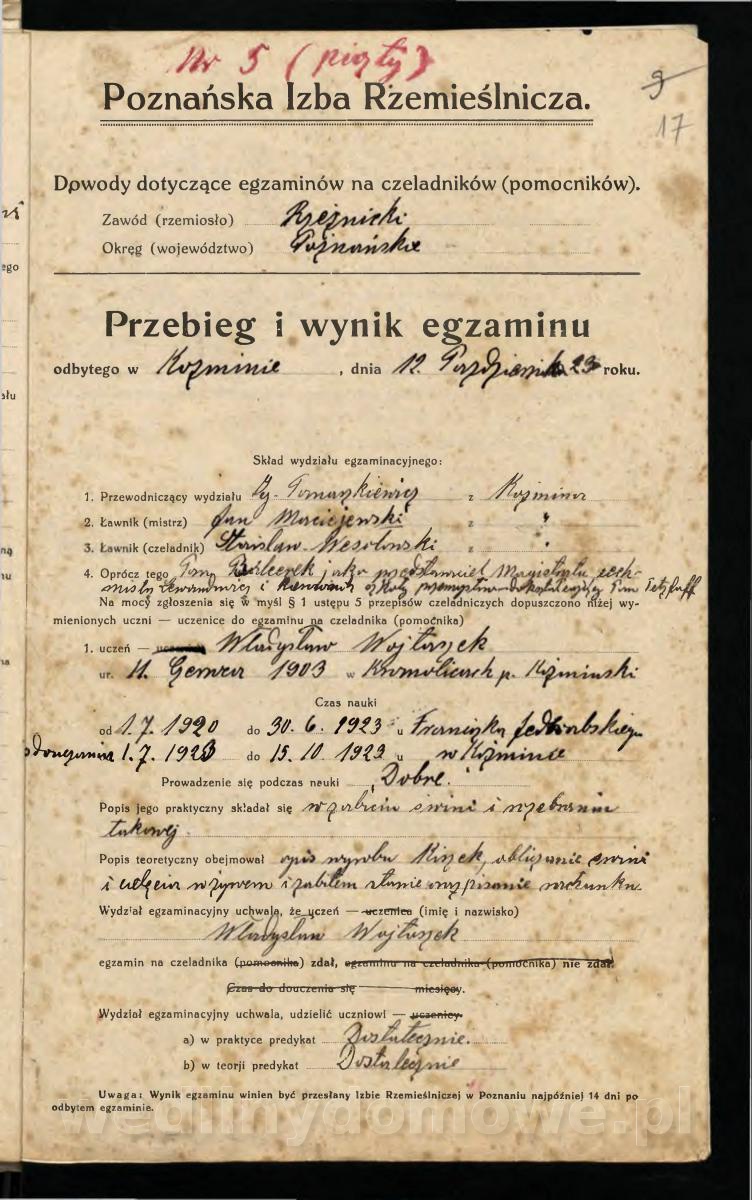 Nr 5 (piąty)
9
17
Poznańska Izba Rzemieślnicza.
Dowody dotyczące egzaminów na czeladników (pomocników).
Zawód (rzemiosło) Rzeźnicki
Okręg (województwo) Poznańskie
Przebieg i wynik egzaminu
odbytego w Koźminie, dnia 12. Października 23 roku.
Skład wydziału egzaminacyjnego:
1. Przewodniczący wydziału Ig. Tomaszkiewicz z Koźmina
2. Ławnik (mistrz) Jan Maciejewski z "
3. Ławnik (czeladnik) Stanisław Wesołowski z "
4. Oprócz tego Pan jako przedstawiciel Magistratu cech-
mistrz i Pan
Na mocy zgłoszenia się w myśl § 1 ustępu 5 przepisów czeladniczych dopuszczono niżej wy-
mienionych uczni — uczenice do egzaminu na czeladnika (pomocnika)
1. uczeń — Władysław Wojtaszek
ur. 11. Czerwca 1903 w p. Koźmiński
Czas nauki
od 1. 7. 1920 do 30. 6. 1923 u Franciszka
1. 7. 1923 do 15. 10. 1923 u w Koźminie
Prowadzenie się podczas nauki „Dobre.
Popis jego praktyczny składał się w zabiciu świni i
takowej.
Popis teoretyczny obejmował opis wyrobu Kiszek, obliczanie świni
i cielęcia w żywem i zabitem stanie oraz pisanie rachunku.
Wydział egzaminacyjny uchwala, że uczeń — uczenica (imię i nazwisko)
Władysław Wojtaszek
egzamin na czeladnika (pomocnika) zdał, egzaminu na czeladnika (pomocnika) nie zdał.
Czas do douczenia się miesięcy.
Wydział egzaminacyjny uchwala, udzielić uczniowi — uczenicy.
a) w praktyce predykat Dostatecznie.
b) w teorji predykat Dostatecznie
Uwaga: Wynik egzaminu winien być przesłany Izbie Rzemieślniczej w Poznaniu najpóźniej 14 dni po
odbytem egzaminie.